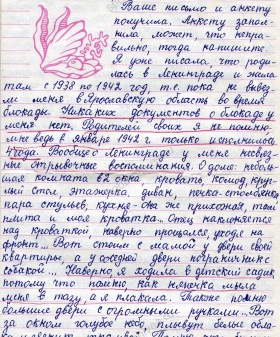 Ваше письмо и анкету
получила. Анкету запол-
нила, может, что непра-
вильно, тогда напишите.
Я уже писала, что роди-
лась в Ленинграде и жила
там с 1938 по 1942 год, т.е. пока не вывез-
ли меня в Ярославскую область во время
блокады. Никаких документов о блокаде у
меня нет. Родителей своих я не помню,
мне ведь в январе 1942 г. только исполнилось
4 года. Вообще о Ленинграде у меня
отрывочные воспоминания. О доме: неболь-
шая комната в 2 окна, кровать, комод, круг-
лый стол, этажерка, диван, печка-столбянка,
пара стульев, кухня - она же прихожая, там
плита и моя кроватка... Отец наклоняется
над кроваткой, наверно прощался, уходя на
фронт... Вот стоим с мамой у двери своей
квартиры, а у соседней двери пограничник с
собакой... Наверно, я ходила в детский садик,
потому что помню, как нянечка мыла
меня в тазу, а я плакала. Также помню
большие двери с огромными ручками.. Вот
за окном голубое небо, плывут белые обла-